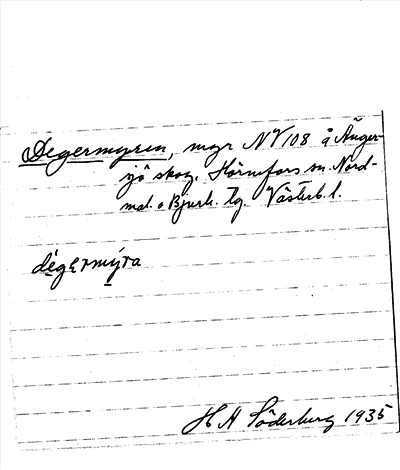 Degermyren, myr NV 108 å Ånger-
sjö skog, Hörnefors sn. Nord-
mal. o Bjurh. tg. Västerb. l.
degermyra
H A Söderberg 1935